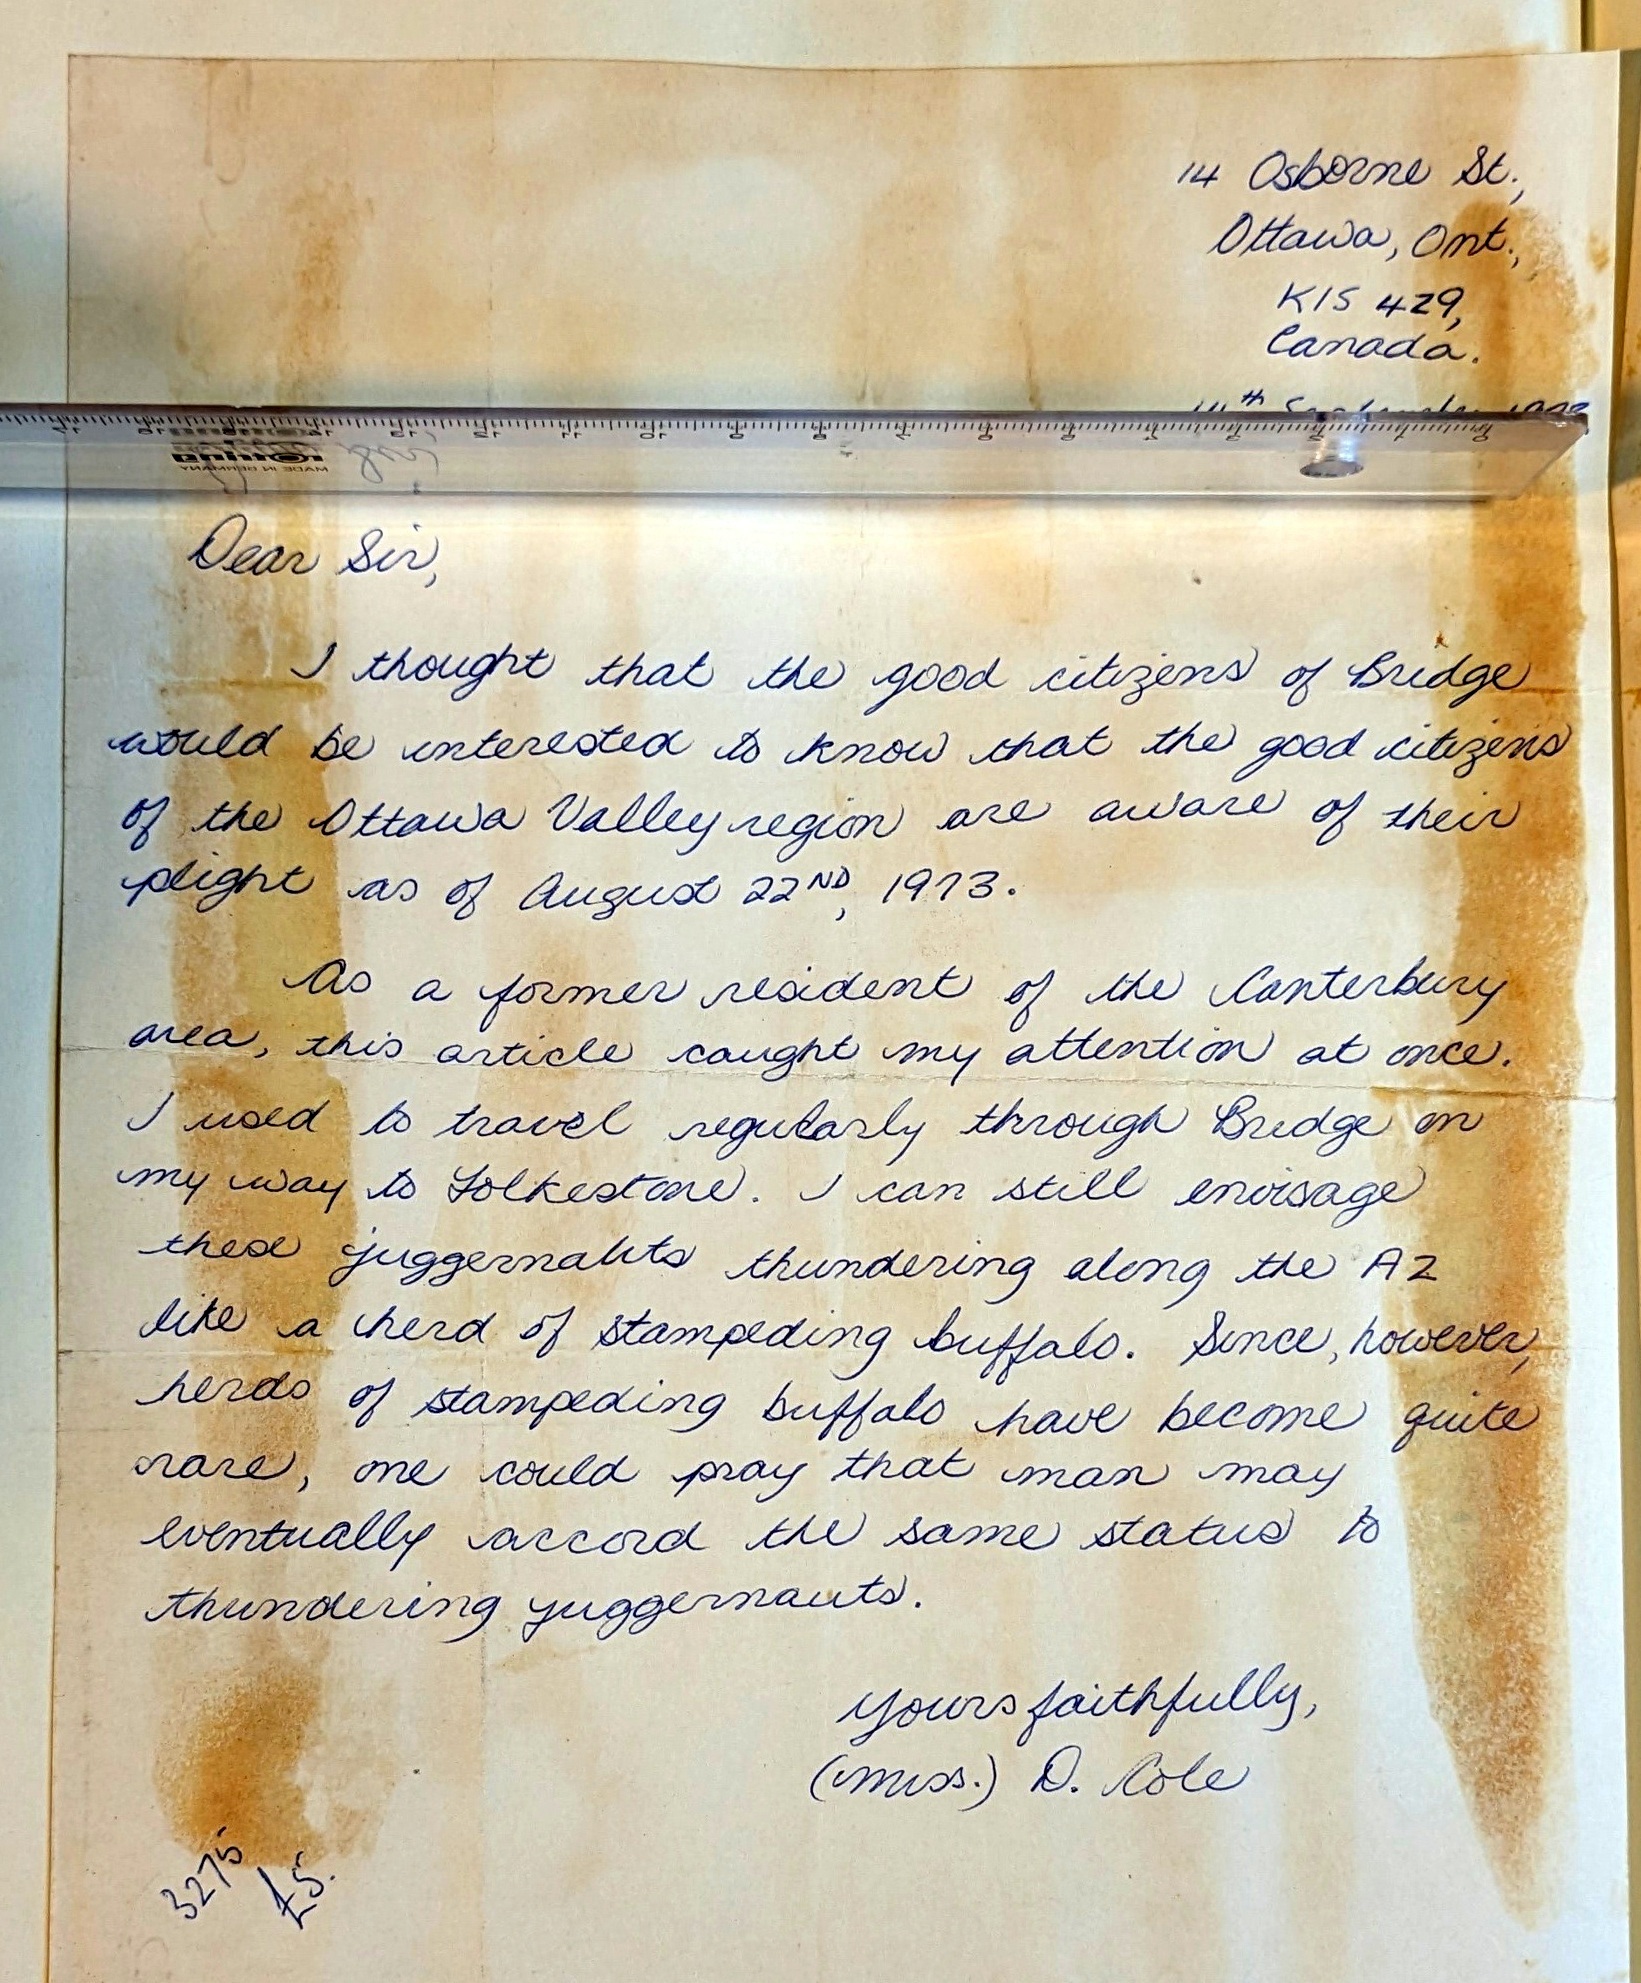 14 Osborne St.,
Ottawa, Ont.,
K1S 4Z9,
Canada.
14th September 1973
MADE IN GERMANY
Dear Sir,
I thought that the good citizens of Bridge
would be interested to know that the good citizens
of the Ottawa Valley region are aware of their
plight as of August 22ND, 1973.
As a former resident of the Canterbury
area, this article caught my attention at once.
I used to travel regularly through Bridge on
my way to Folkestone. I can still envisage
these juggernauts thundering along the A2
like a herd of stampeding buffalo. Since, however,
herds of stampeding buffalo have become quite
rare, one could pray that man may
eventually accord the same status to
thundering juggernauts.
Yours faithfully,
(Miss.) D. Cole
3275
£5.